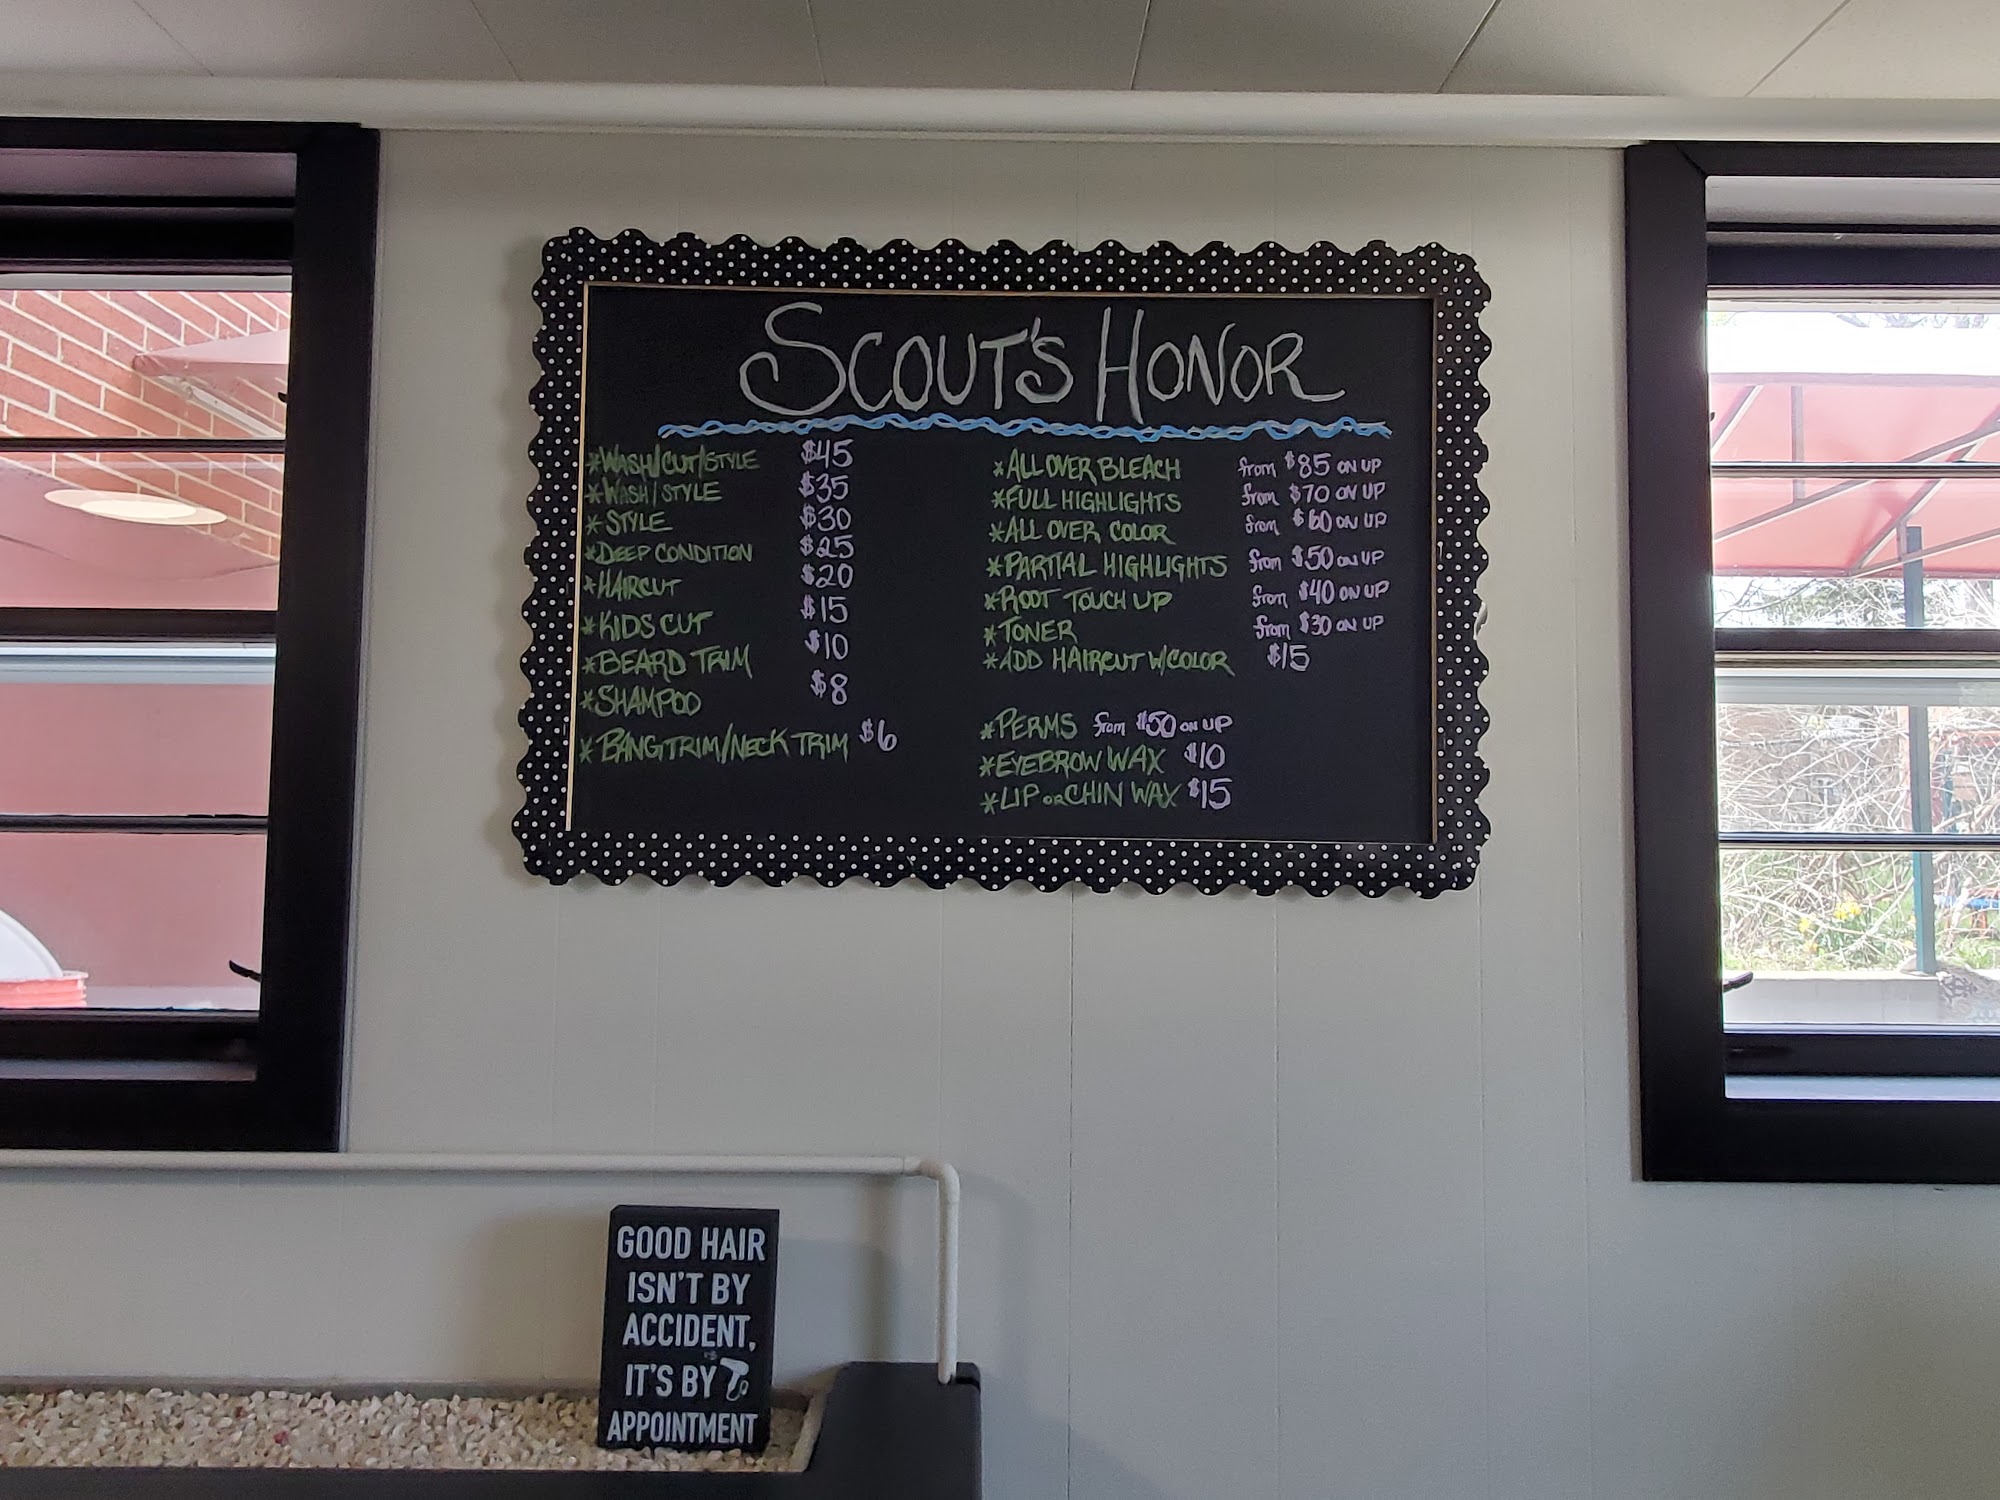 SCOUT'S HONOR
*WASH/CUT/STYLE $45
*WASH/STYLE $35
*STYLE $30
*DEEP CONDITION $25
*HAIRCUT $20
*KIDS CUT $15
*BEARD TRIM $10
*SHAMPOO $8
*BANGTRIM/NECK TRIM $6
*ALL OVER BLEACH from $85 ON UP
*FULL HIGHLIGHTS from $70 ON UP
*ALL OVER COLOR from $60 ON UP
*PARTIAL HIGHLIGHTS from $50 ON UP
*ROOT TOUCH UP from $40 ON UP
*TONER from $30 ON UP
*ADD HAIRCUT W/COLOR $15
*PERMS from $50 ON UP
*EYEBROW WAX $10
*LIP OR CHIN WAX $15
GOOD HAIR
ISN'T BY
ACCIDENT,
IT'S BY
APPOINTMENT